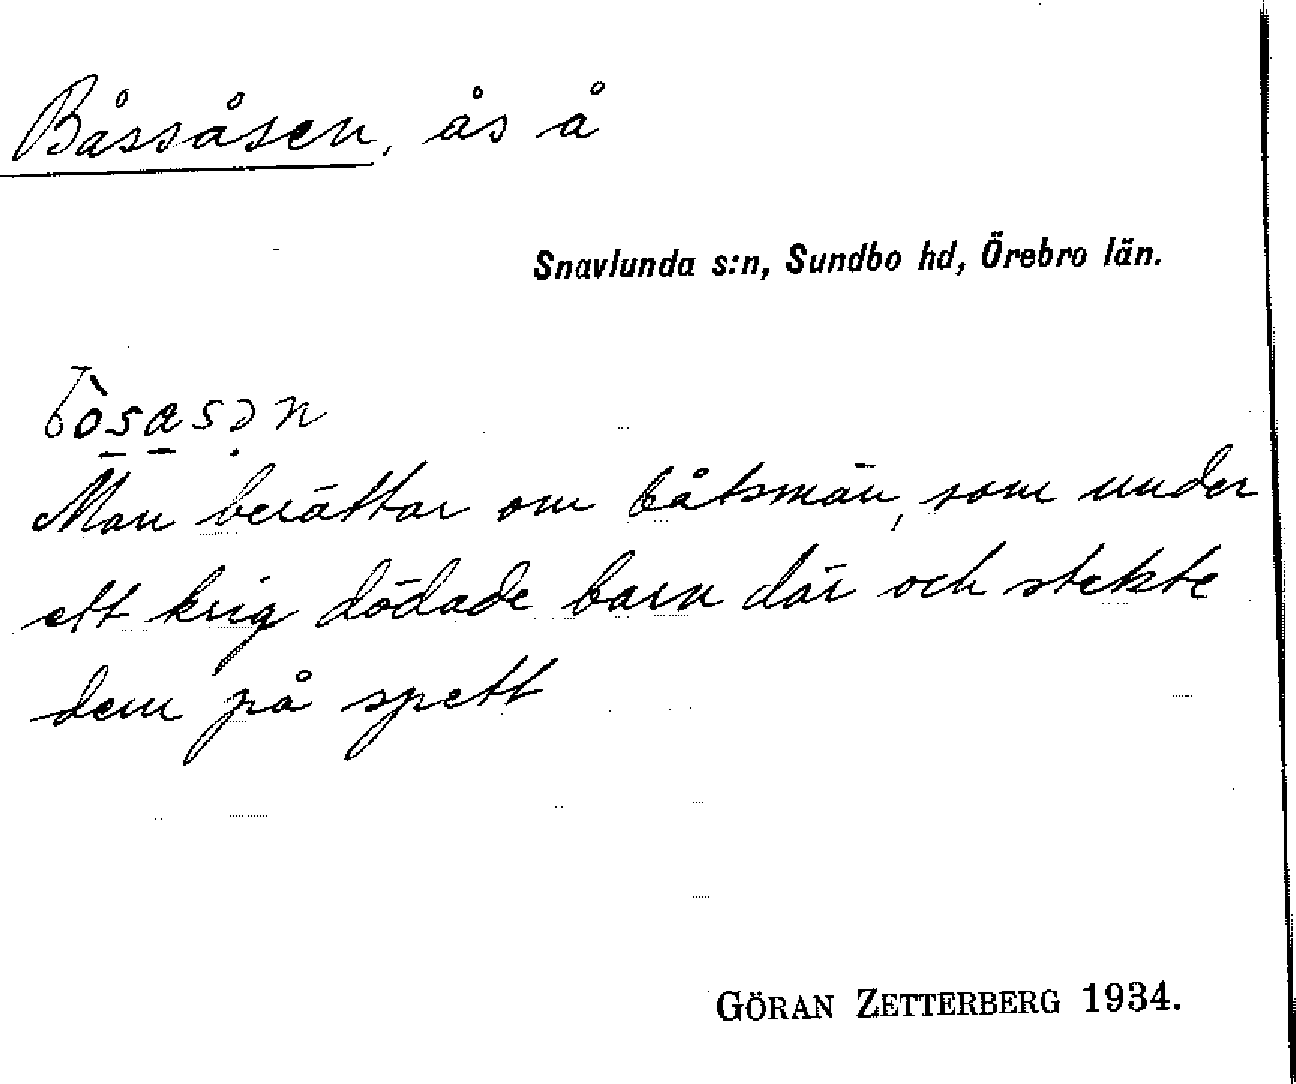 Båssåsen, ås å
Snavlunda s:n, Sundbo hd, Örebro län.
Man berättar om båtsmän, som under
ett krig dödade barn där och stekte
dem på spett
GÖRAN ZETTERBERG 1934.